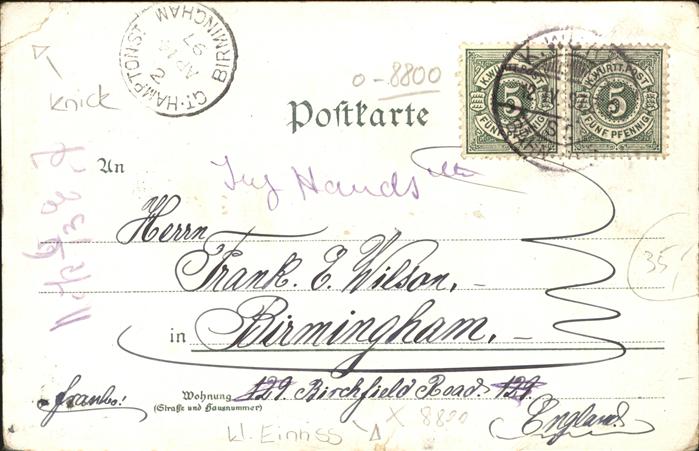 GT. HAMPTON ST
BIRMINGHAM
2
AP 14
97
Knick
0-8800
Postkarte
K.WÜRTT.POST
5
FÜNF PFENNIG
K.WÜRTT.POST
5
FÜNF PFENNIG
An
Hands
Herrn
Frank. E. Wilson.
in Birmingham.
35
franko!
Wohnung 129. Birchfield Road. 129.
(Straße und Hausnummer)
England.
X 8820
kl. Einriss